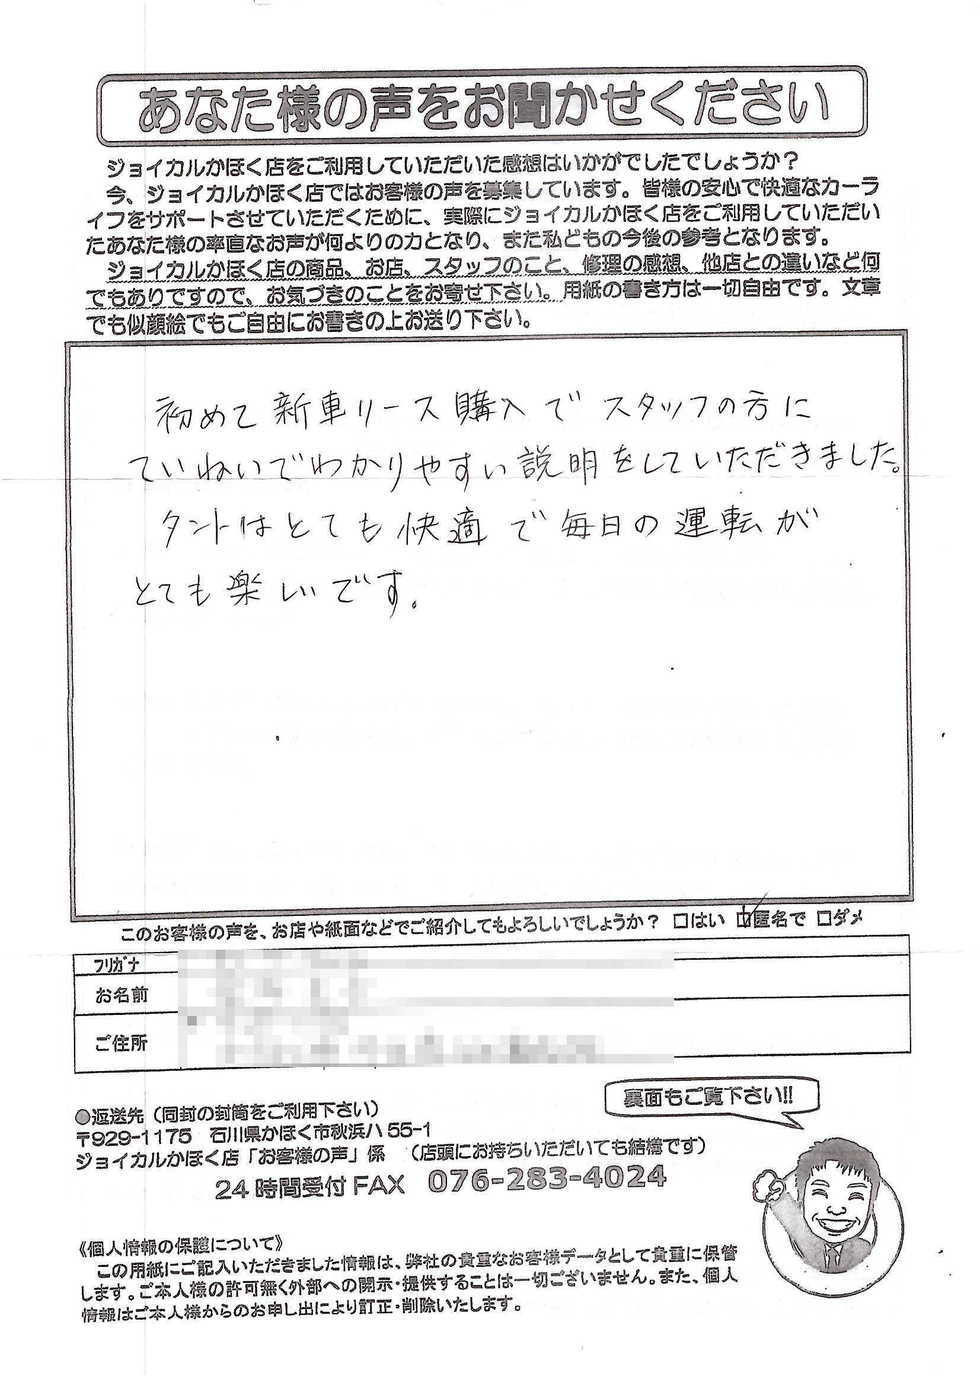 あなた様の声をお聞かせください
ジョイカルかほく店をご利用していただいた感想はいかがでしたでしょうか？
今、ジョイカルかほく店ではお客様の声を募集しています。皆様の安心で快適なカーラ
イフをサポートさせていただくために、実際にジョイカルかほく店をご利用していただい
たあなた様の率直なお声が何よりの力となり、また私どもの今後の参考となります。
ジョイカルかほく店の商品、お店、スタッフのこと、修理の感想、他店との違いなど何
でもありですので、お気づきのことをお寄せ下さい。用紙の書き方は一切自由です。文章
でも似顔絵でもご自由にお書きの上お送り下さい。
初めて新車リース購入でスタッフの方に
ていねいでわかりやすい説明をしていただきました。
タントはとても快適で毎日の運転が
とても楽しいです。
このお客様の声を、お店や紙面などでご紹介してもよろしいでしょうか？ □はい ☑匿名で □ダメ
フリガナ
お名前
ご住所
裏面もご覧下さい!!
●返送先（同封の封筒をご利用下さい）
〒929-1175 石川県かほく市秋浜ハ55-1
ジョイカルかほく店「お客様の声」係 （店頭にお持ちいただいても結構です）
24時間受付FAX 076-283-4024
《個人情報の保護について》
この用紙にご記入いただきました情報は、弊社の貴重なお客様データとして貴重に保管
します。ご本人様の許可無く外部への開示・提供することは一切ございません。また、個人
情報はご本人様からのお申し出により訂正・削除いたします。